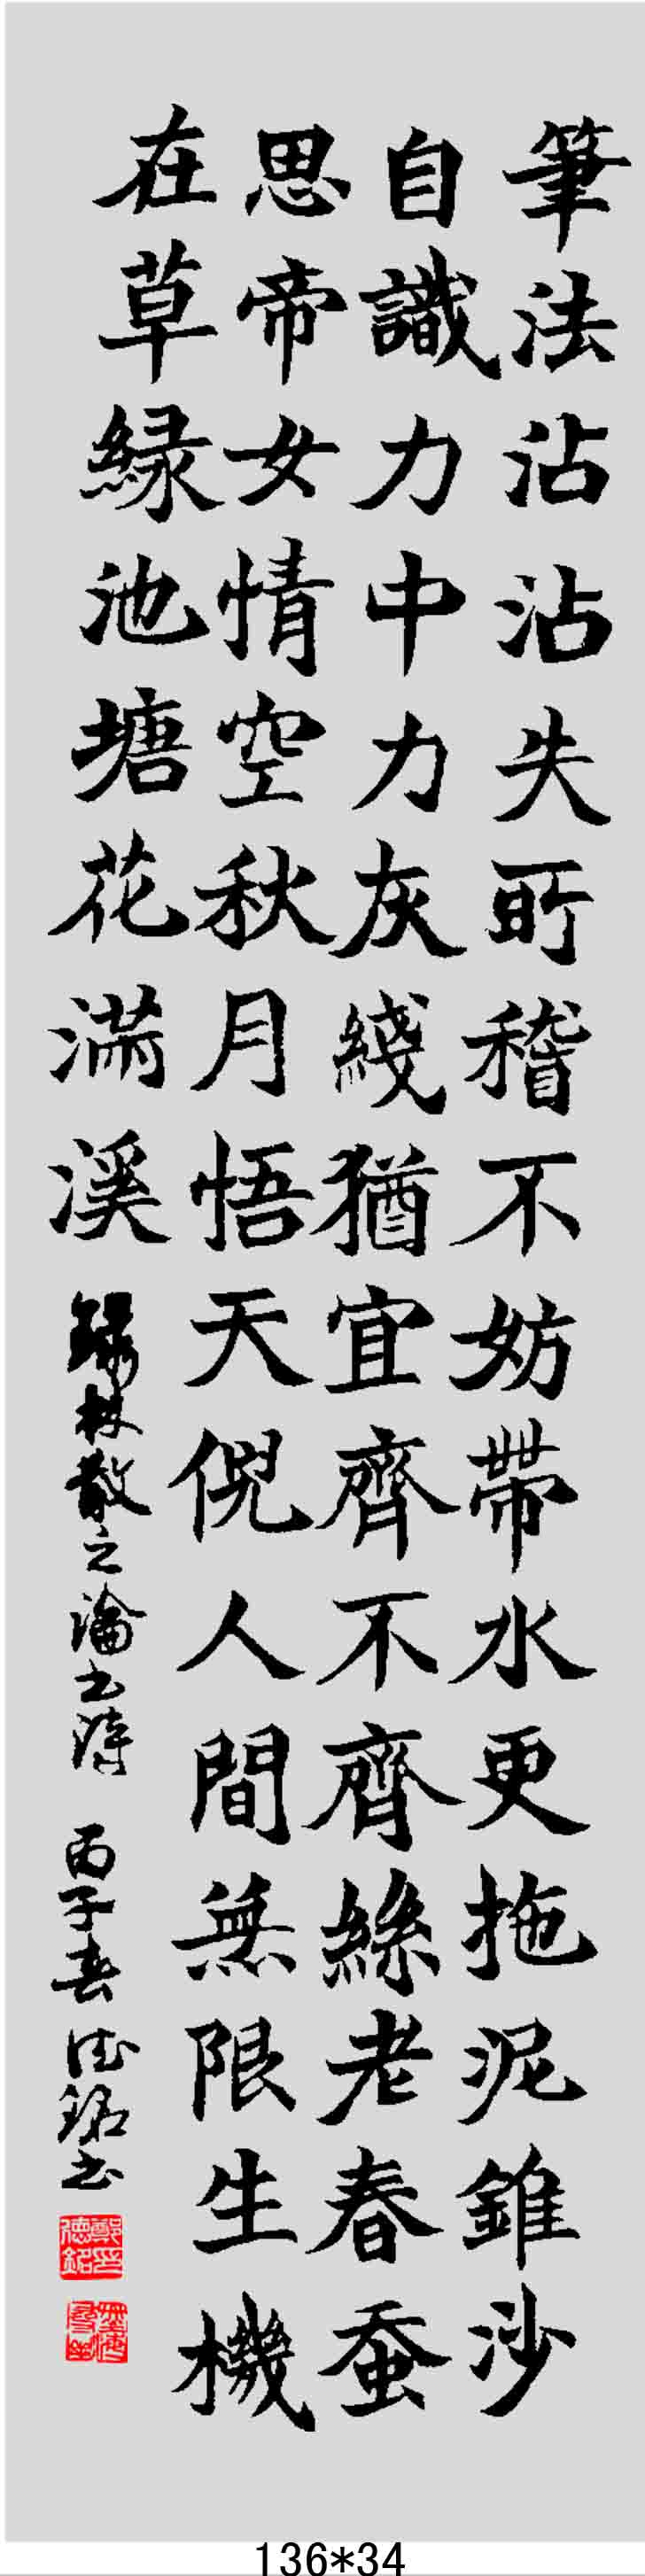 筆法沾沾失所稽不妨帶水更拖泥錐沙
自識力中力灰綫猶宜齊不齊絲老春蚕
思帝女情空秋月悟天倪人間無限生機
在草緑池塘花滿溪
錄林散之論書詩
丙子春 德銘書
鄭德銘印
136*34